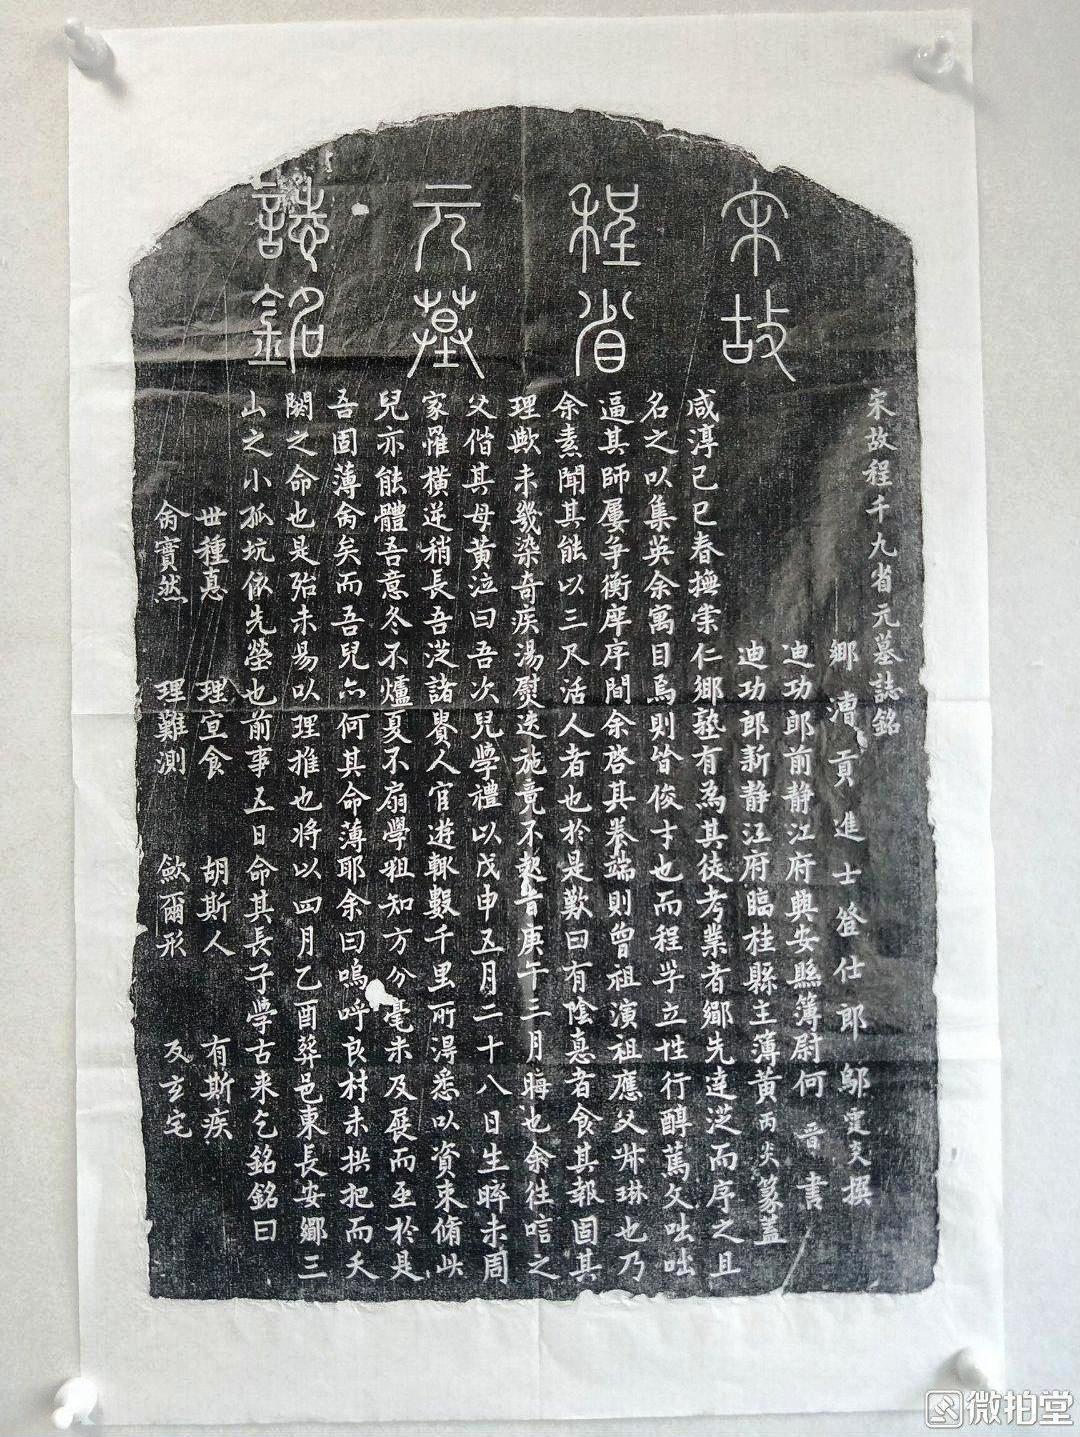 宋故
程省
元墓
誌銘
宋故程千九省元墓誌銘
鄉漕貢進士登仕郎鄔霆炎撰
迪功郎前静江府興安縣簿尉何晉書
迪功郎新静江府臨桂縣主薄黃丙炎篆蓋
咸淳己巳春撫崇仁鄉塾有為其徒考業者鄉先達涖而序之且
名之以集英余寓目焉則皆俊才也而程学立性行醇篤文咄咄
逼其師屢爭衡庠序間余啓其養端則曾祖演祖應父夶琳也乃
余素聞其能以三尺活人者也於是歎曰有陰悳者食其報固其
理歟未幾染奇疾湯熨迭施竟不起旹庚午三月晦也余往唁之
父偕其母黃泣曰吾次兒學禮以戊申五月二十八日生晬未周
家罹橫逆稍長吾涖諸賓人官遊輒數千里所淂悉以資束脩此
兒亦能體吾意冬不爐夏不扇學粗知方分毫未及展而至於是
吾固薄㑹矣而吾兒亦何其命薄耶余曰嗚呼良材未拱把而夭
閼之命也是殆未易以理推也將以四月乙酉葬邑東長安鄉三
山之小孤坑依先塋也前事五日命其長子学古来乞銘銘曰
世種悳 理宜食 胡斯人 有斯疾
㑹實然 理難測 歛爾形 反玄宅
微拍堂